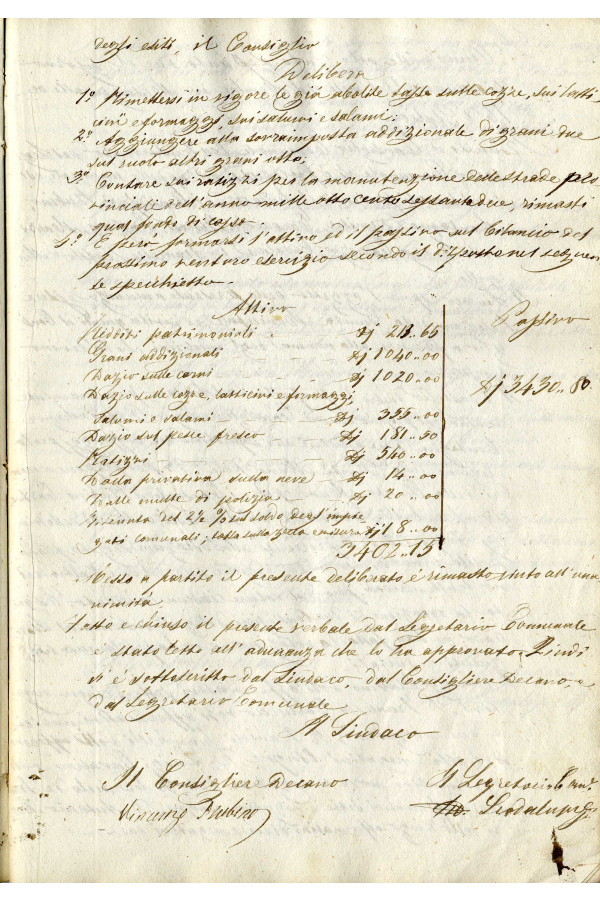 degli esiti, il Consiglio
Delibera
1º Rimettersi in vigore le già abolite tasse sulle cozze, sui latti,
cini e formaggi sui salumi e salami;
2º Aggiungere alla sovraimposta addizionale di grani due
sul ruolo altri grani otto;
3º Contare sui ratizzi per la manutenzione delle strade pro
vinciali dell'anno mille otto cento sessantadue, rimasti
quai fondi di cassa.
4º E però formarsi l'attivo ed il passivo sul bilancio del
prossimo venturo esercizio secondo il disposto nel seguen
te specchietto.
Attivo
Passivo
Redditi patrimoniali 213..65
Grani addizionali 1040..00
Dazio sulle carni 1020..00
3430..80.
Dazio sulle cozze, latticini e formaggi
Salumi e salami 355..00
Dazio sul pesce fresco 181..50
Ratizzi 540..00
Dalla privativa sulla neve 14..00
Dalle multe di polizia 20..00
Ritenuta del 2½ % sul soldo degl'impie
gati comunali; tassa sulla zecca e misura 18..00
3402..15
Messo a partito il presente deliberato è rimasto statuito all'una
nimità
Fatto e chiuso il presente verbale dal Segretario Comunale
è stato letto all'adunanza che lo ha approvato. Quindi
si è sottoscritto dal Sindaco, dal Consigliere Decano, e
dal Segretario Comunale
Il Sindaco
Il Consigliere Decano
Il Segretario Com.
Vincenzo Rubino